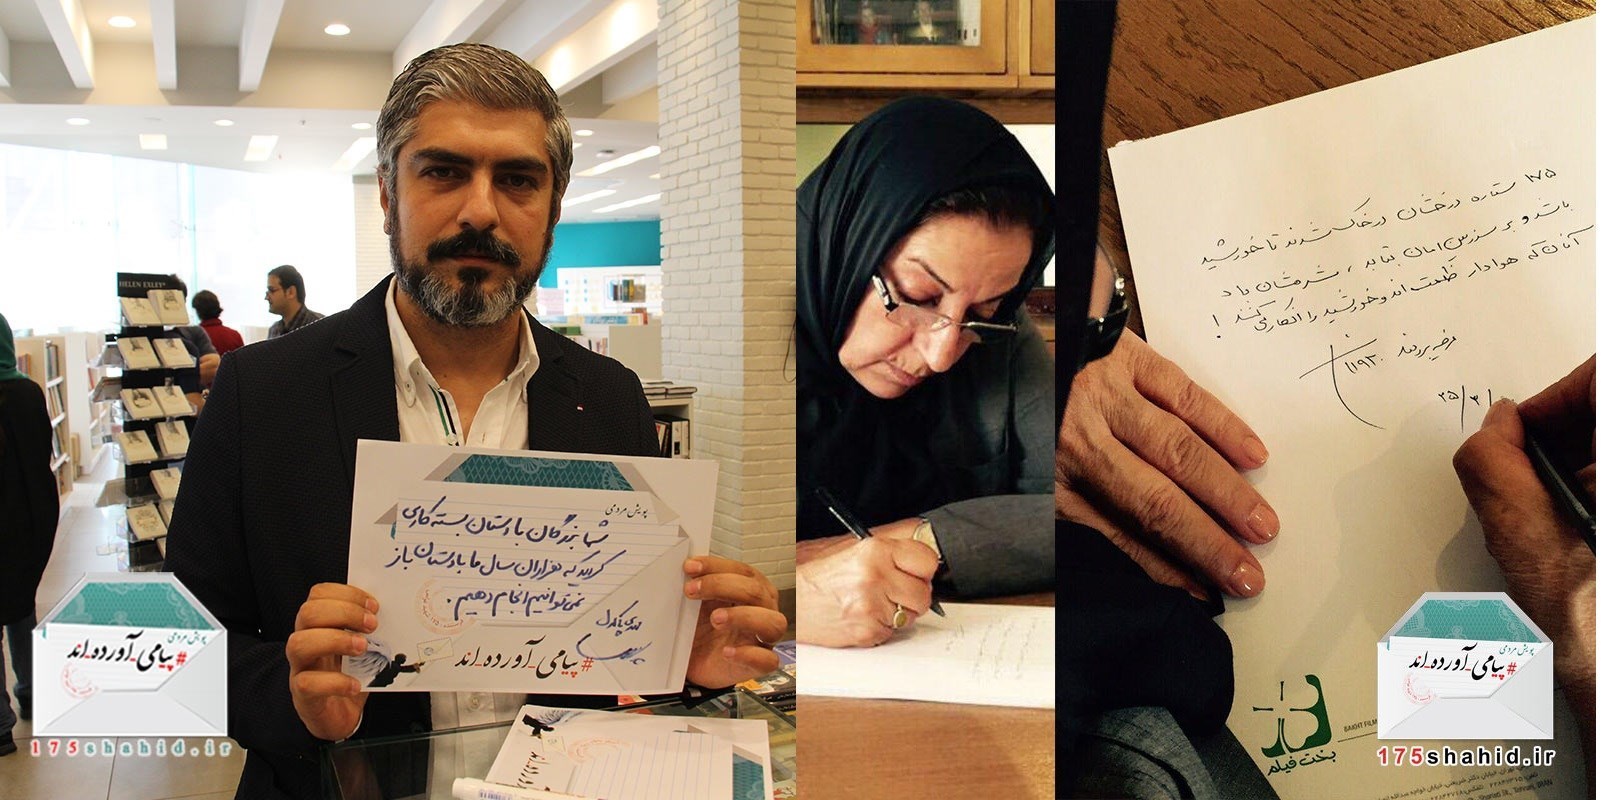 HELEN EXLEY
پویش مردمی
شما بزرگان با دستان بسته کاری
کردید که هزاران سال ما با دستان باز
نمی‌توانیم انجام دهیم.
مهدی پاکدل
#پیامی_آورده_اند
پویش مردمی
#پیامی_آورده_اند
175shahid.ir
۱۷۵ ستاره درخشان در خاک شدند تا خورشید
باشد و بر سرزمین‌امان بتابد، شرمشان باد
آنان که هوادار ظلمت اند و خورشید را انکار می‌کنند!
مرضیه برومند
بخت فیلم
BAKHT FILM
پویش مردمی
#پیامی_آورده_اند
175shahid.ir